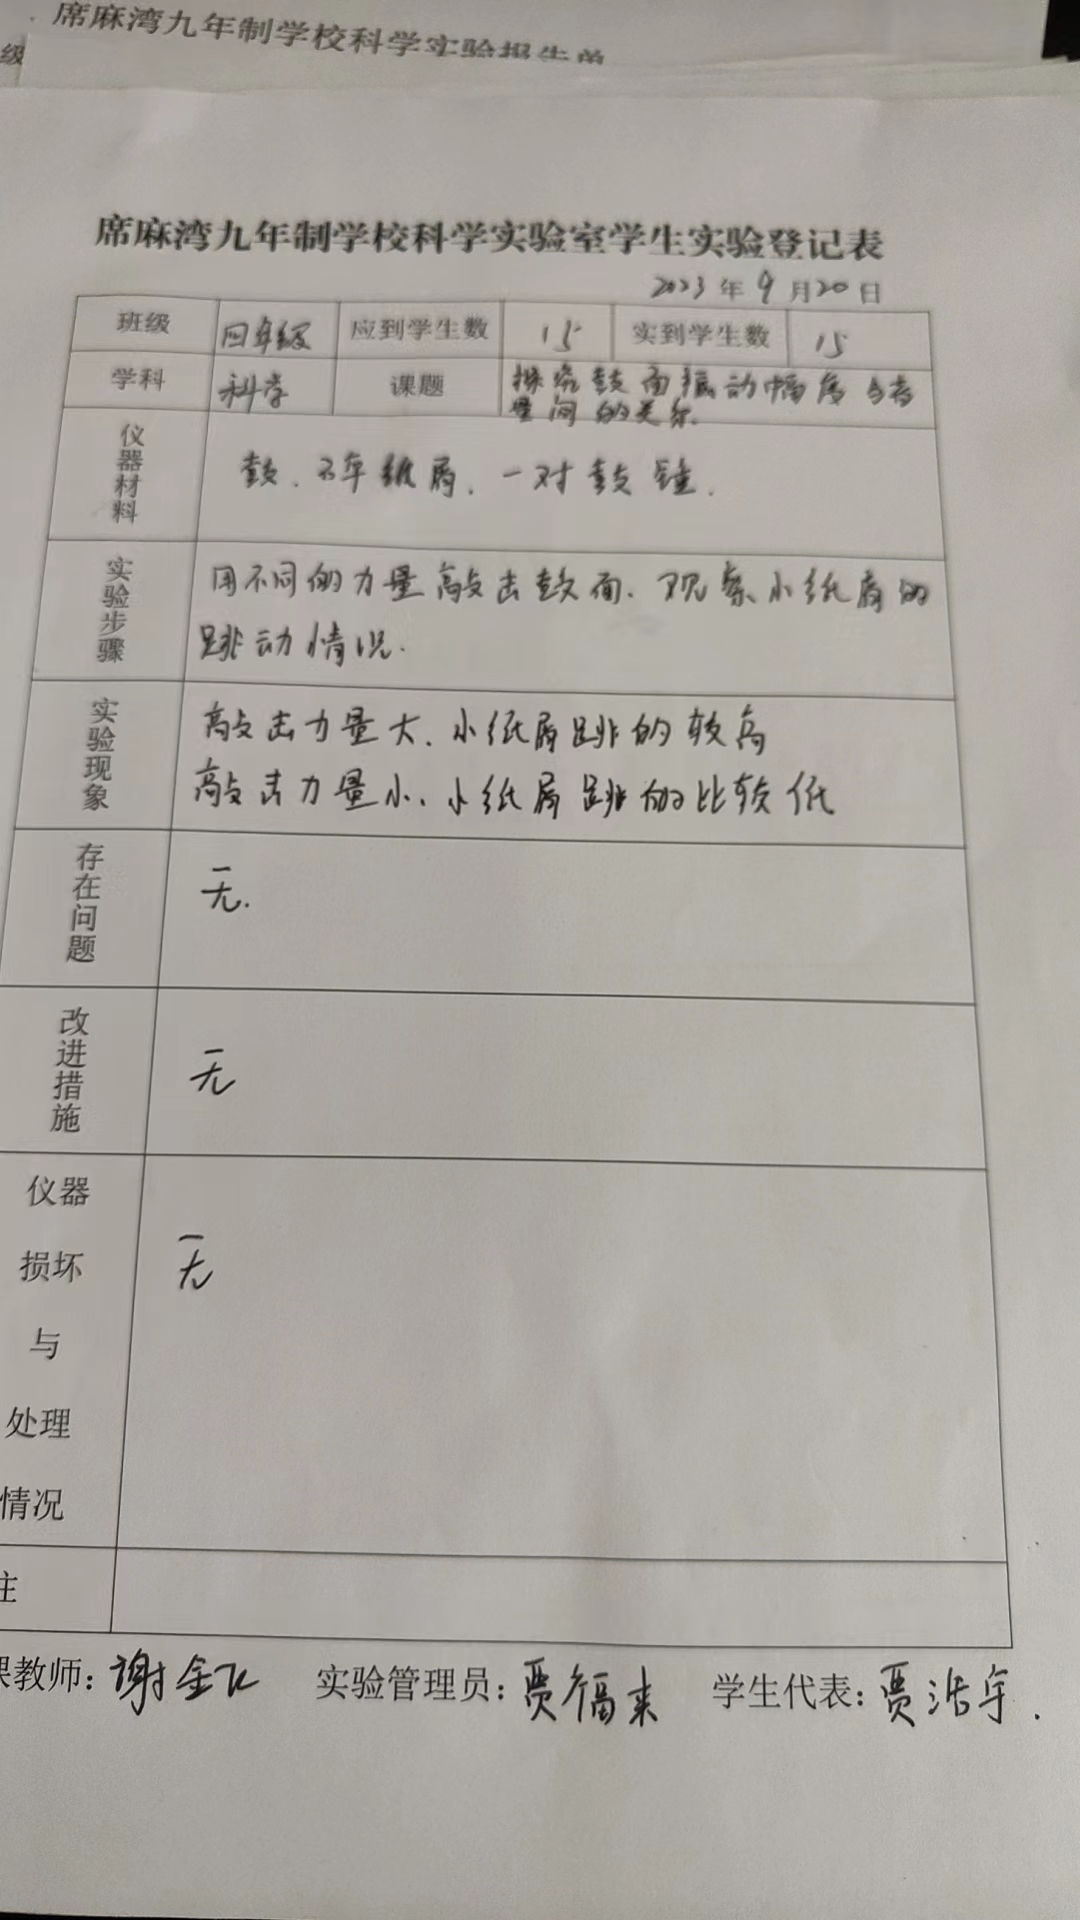 席麻湾九年制学校科学实验报告单
级
席麻湾九年制学校科学实验室学生实验登记表
2023年9月20日
班级 四年级 应到学生数 15 实到学生数 15
学科 科学 课题 探究鼓面振动幅度与音
量间的关系
仪器材料 鼓、不干纸屑、一对鼓锤.
实验步骤 用不同的力量敲击鼓面、观察小纸屑的
跳动情况.
实验现象 敲击力量大、小纸屑跳的较高
敲击力量小、小纸屑跳的比较低
存在问题 无.
改进措施 无
仪器
损坏 无
与
处理
情况
注
课教师:谢金飞 实验管理员:贾福来 学生代表:贾浩宇.